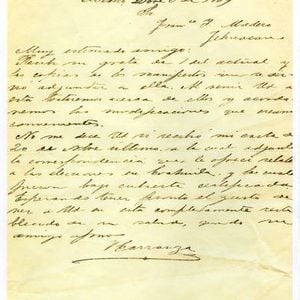 Dbre 6 de 1909
Sr.
Franco. I. Madero
Tehuacan
Muy estimado amigo:
Recibí su grata de 1 del actual y
las copias de los manifestos que se sir-
vió adjuntar a ella. Al venir Ud a
esta trataremos acerca de ellos y acorda-
remos las modificaciones que crea
convenientes.
No me dice Ud si recibió mi carta de
20 de Nbre último, a la cual adjunté
la correspondencia que le ofrecí relati
a las elecciones en Coahuila, y las cuales
fueron bajo cubierta certificada.
Esperando tener pronto el gusto de
ver a Ud en esta completamente resta
blecido de su salud, quedo su
amigo afmo
V Carranza